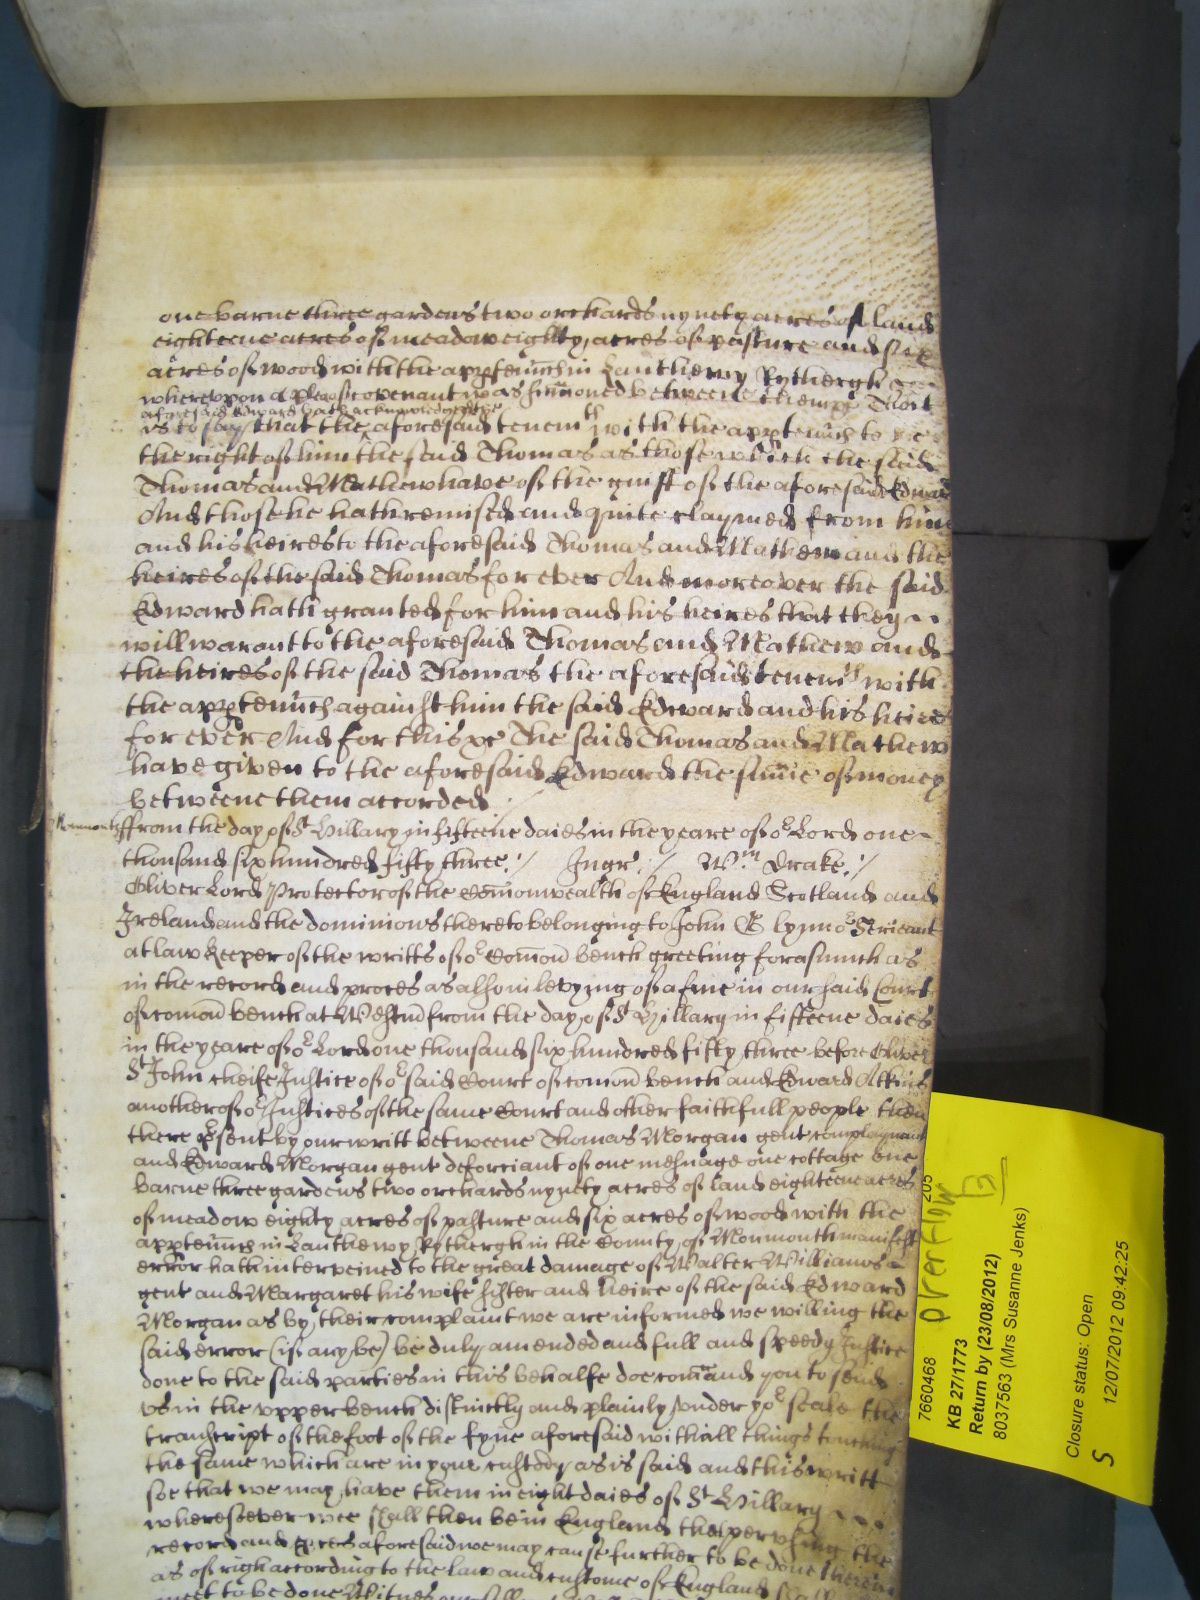 one barne three gardens two orchards nynety acres of land
eighteene acres of meadow eighty acres of pasture and six
acres of wood with the apptenncs in Lanthewy Rythergh
whereupon a plea of covenant was sumoned betweene them &c That
aforesaid Edward hath acknowledged the
is to say that the aforesaid tenemts with the apptenncs to be
the right of him the said Thomas as those which the said
Thomas and Mathew have of the guift of the aforesaid Edward
And those he hath remised and quite claymed from him
and his heires to the aforesaid Thomas and Mathew and the
heires of the said Thomas for ever And moreover the said
Edward hath granted for him and his heires that they
will warant to the aforesaid Thomas and Mathew and
the heires of the said Thomas the aforesaid tenemts with
the apptenncs against him the said Edward and his heires
for ever And for this &c The said Thomas and Mathew
have given to the aforesaid Edward the sume of money
betweene them accorded
Monmouth ffrom the day of St Hillary in fifteene daies in the yeare of or Lord one
thousand six hundred fifty three :/ Ingr :/ Wm Drake :/
Oliver Lord Protector of the Comonwealth of England Scotland and
Ireland and the dominions thereto belonging to John Glynn or Serieant
at law keeper of the writts of or Comon bench greeting forasmuch as
in the record and proces as also in levying of a fine in our said Court
of comon bench at Westm from the day of St Hillary in fifteene daies
in the yeare of or Lord one thousand six hundred fifty three before Oliver
St John cheife Justice of or said Court of comon bench and Edward Atkins
another of or Justices of the same Court and other faithfull people then
there psent by our writt betweene Thomas Morgan gent complaynant
and Edward Morgan gent deforciant of one mesuage one cottage one
barne three gardens two orchards nynety acres of land eighteene acres
of meadow eighty acres of pasture and six acres of wood with the
apptenncs in Lanthewy Rythergh in the County of Monmouth manifest
error hath interveined to the great damage of Walter Williams
gent and Margaret his wife sister and heire of the said Edward
Morgan as by their complaint we are informed we willing the
said error (if any be) be duly amended and full and speedy Justice
done to the said parties in this behalfe doe comand you to send
us in the upper bench distinctly and plainly under yor seale the
transcript of the foot of the fyne aforesaid with all things touching
the same which are in your custody as is said and this writt
soe that we may have them in eight daies of St Hillary
wheresoever wee shall then be in England that perusing the
record and pces aforesaid we may cause further to be done therein
as of right according to the law and custome of England
meet to be done Witnes
205
overflow
13
7660468
KB 27/1773
Return by (23/08/2012)
8037563 (Mrs Susanne Jenks)
Closure status: Open
12/07/2012 09:42:25
S